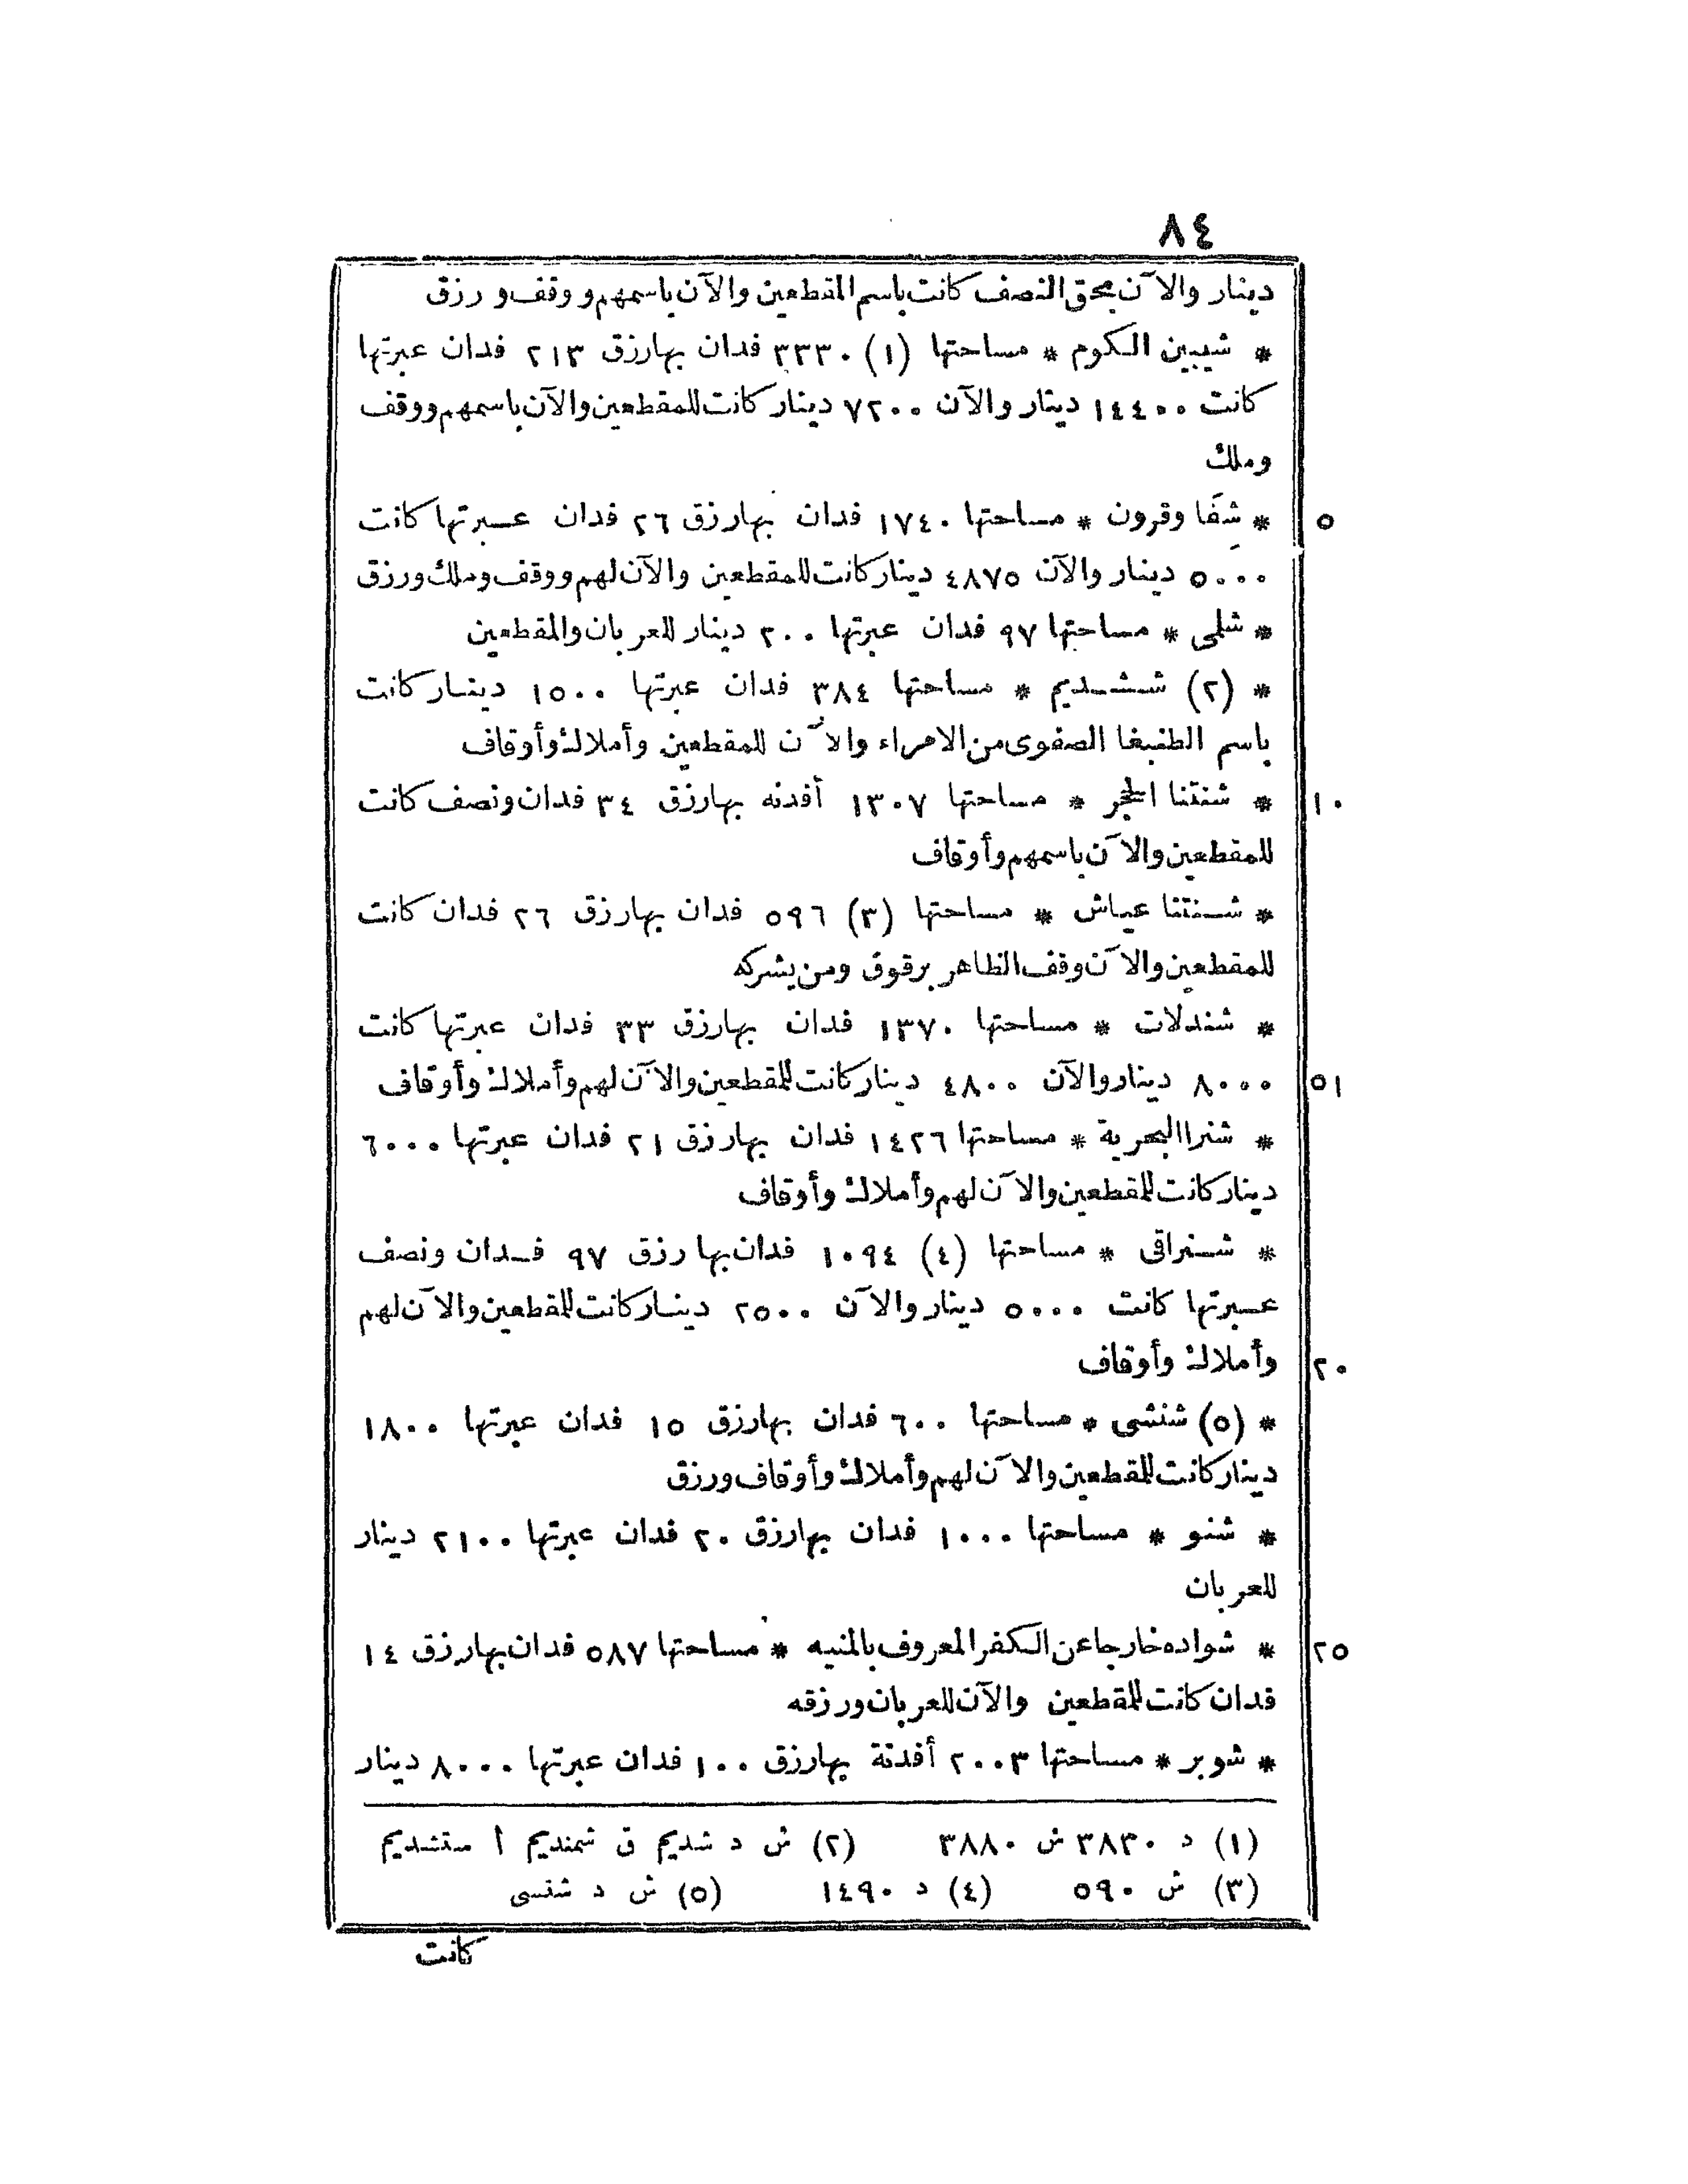 ٨٤
دينار والآن بحق النصف كانت باسم المقطعين والآن باسمهم ووقف ورزق
* شيبين الكوم * مساحتها (١) ٣٣٣٠ فدان بها رزق ٢١٣ فدان عبرتها
كانت ١٤٤٠٠ دينار والآن ٧٢٠٠ دينار كانت للمقطعين والآن باسمهم ووقف
وملك
٥ * شفا وقرون * مساحتها ١٧٤٠ فدان بها رزق ٢٦ فدان عبرتها كانت
٥٠٠٠ دينار والآن ٤٨٧٥ دينار كانت للمقطعين والآن لهم ووقف وملك ورزق
* شلمى * مساحتها ٩٧ فدان عبرتها ٢٠٠ دينار للعربان والمقطعين
* (٢) ششديم * مساحتها ٣٨٤ فدان عبرتها ١٥٠٠ دينار كانت
باسم الطنبغا الصفوى من الامراء والآن للمقطعين وأملاك وأوقاف
١٠ * شنتنا الحجر * مساحتها ١٣٠٧ أفدنه بها رزق ٣٤ فدان ونصف كانت
للمقطعين والآن باسمهم وأوقاف
* شنتنا عياش * مساحتها (٣) ٥٩٦ فدان بها رزق ٢٦ فدان كانت
للمقطعين والآن وقف الظاهر برقوق ومن يشركه
* شندلات * مساحتها ١٣٧٠ فدان بها رزق ٣٣ فدان عبرتها كانت
٥١ ٨٠٠٠ دينار والآن ٤٨٠٠ دينار كانت للمقطعين والآن لهم وأملاك وأوقاف
* شنرا البحرية * مساحتها ١٤٢٦ فدان بها رزق ٢١ فدان عبرتها ٦٠٠٠
دينار كانت للمقطعين والآن لهم وأملاك وأوقاف
* شنراقى * مساحتها (٤) ١٠٩٤ فدان بها رزق ٩٧ فدان ونصف
عبرتها كانت ٥٠٠٠ دينار والآن ٢٥٠٠ دينار كانت للمقطعين والآن لهم
٢٠ وأملاك وأوقاف
* (٥) شنشى * مساحتها ٦٠٠ فدان بها رزق ١٥ فدان عبرتها ١٨٠٠
دينار كانت للمقطعين والآن لهم وأملاك وأوقاف ورزق
* شنو * مساحتها ١٠٠٠ فدان بها رزق ٢٠ فدان عبرتها ٢١٠٠ دينار
للعربان
٢٥ * شواده خارجا عن الكفر المعروف بالمنيه * مساحتها ٥٨٧ فدان بها رزق ١٤
فدان كانت للمقطعين والآن للعربان ورزقه
* شوبر * مساحتها ٢٠٠٣ أفدنة بها رزق ١٠٠ فدان عبرتها ٨٠٠٠ دينار
(١) د ٣٨٣٠ ش ٣٨٨٠ (٢) ش د شديم ق شمنديم أ ستشديم
(٣) ش ٥٩٠ (٤) د ١٤٩٠ (٥) ش د شنسى
كانت